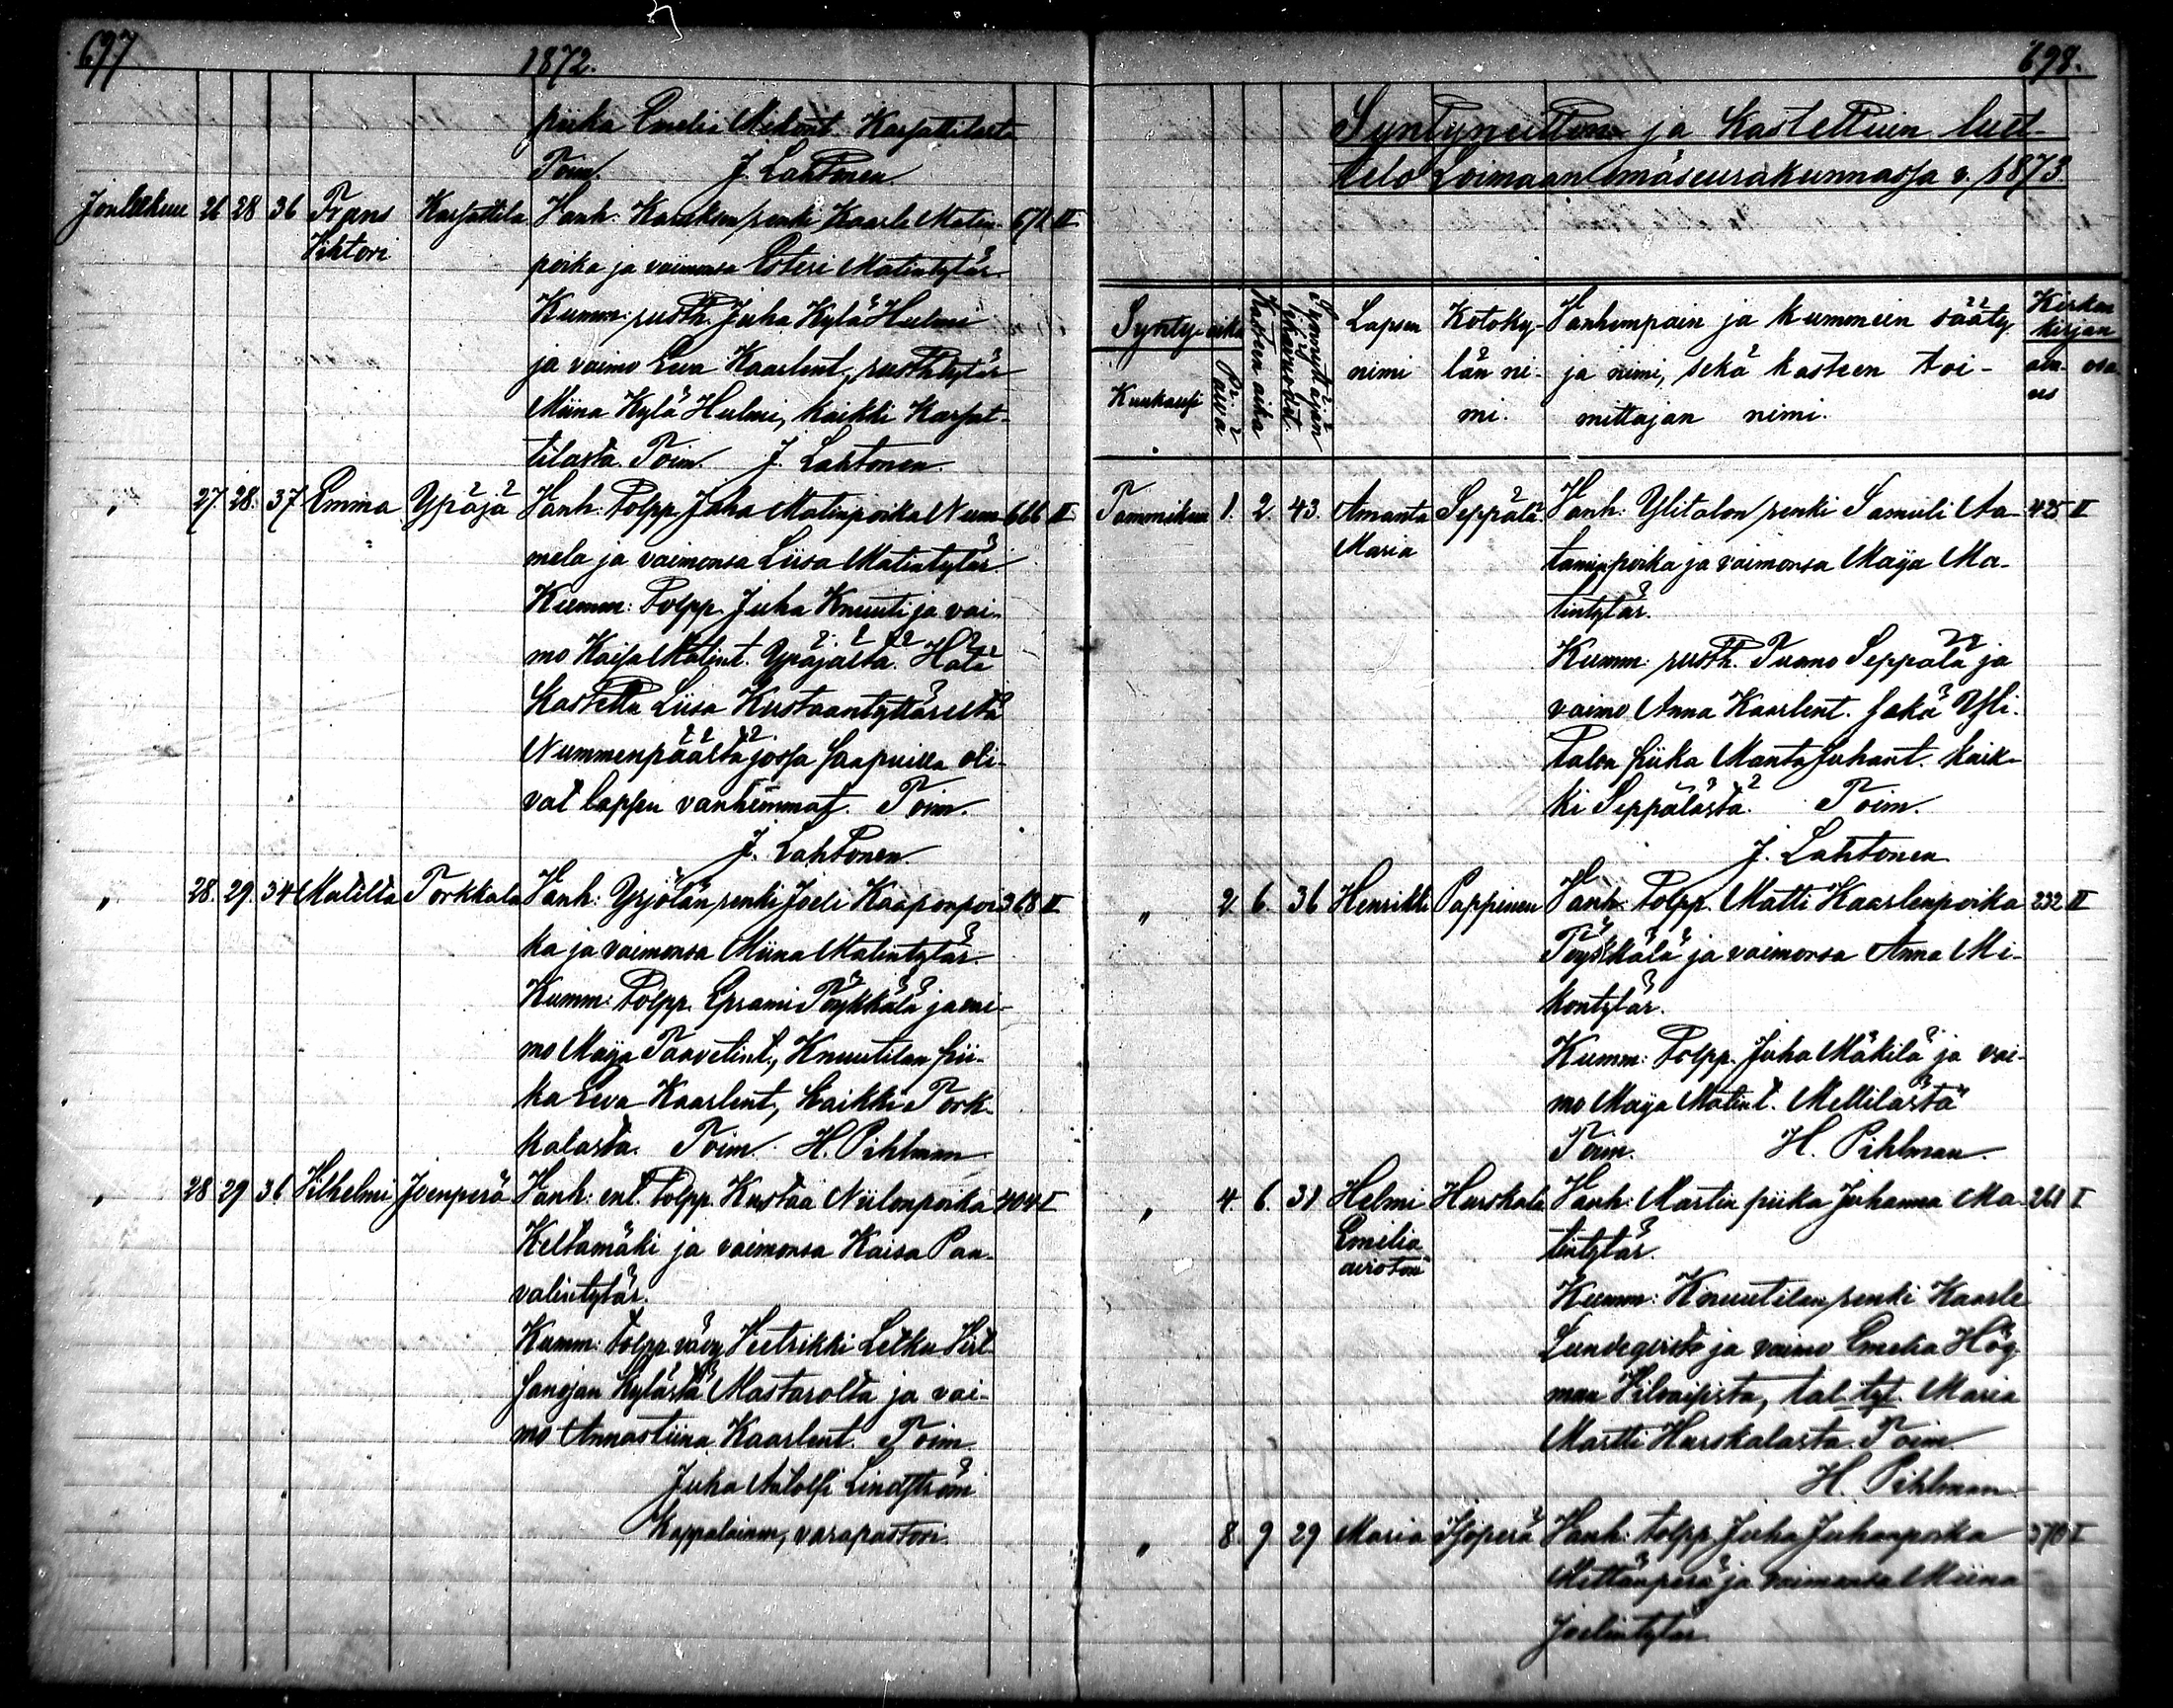 697
1872.
piika Emelia Mikont. Karsattilasta
Toim. J. Lahtonen.
Joulukuu 26 28 36 Frans Karsattila Vanh: renki Kaarle Matin- 671 II
Vihtori poika ja vaimonsa Esteri Matintytär.
Kumm: rusth. Juha Kylä Hulmi
ja vaimo Eeva Kaarlent., rusth. tytär
Miina Kylä Hulmi, kaikki Karsat-
tilasta. Toim. J. Lahtonen.
" 27. 28. 37 Emma Ypäjä Vanh: Tolpp. Juha Matinpoika Num- 626 II
mela ja vaimonsa Liisa Matintytär.
Kumm: Tolpp. Juha Knuuti ja vai-
mo Kaisa Matint. Ypäjästä. Hätä
kastettu Liisa Kustaantyttäreltä
Nummenpäältä jossa saapuilla oli-
vat lapsen vanhemmat. Toim.
J. Lahtonen
" 28. 29. 34 Matilta Torkkala Vanh: Yrjölän renki Joeli Kaaponpoi- 368 II
ka ja vaimonsa Miina Matintytär.
Kumm: Tolpp. Eprami Töykkälä ja vai-
mo Maija Taavetint., Knuutilan pii-
ka Eeva Kaarlent., kaikki Tork-
kalasta. Toim. H. Pihlman
" 28 29 36 Vilhelmi Joenperä Vanh: ent. Tolpp. Kustaa Niilonpoika 404 I
Keltamäki ja vaimonsa Kaisa Paa-
valintytär.
Kumm: Tolpp. vävy Heetrikki Letku Virt-
sanojan kylästä Mastarolta ja vai-
mo Annastiina Kaarlent. Toim.
Juha Aatolfi Lindström
Kappalainen, varapastori.
698.
Syntyneitten ja Kastettuin luet-
telo Loimaan emäseurakunnassa v. 1873
Synty-aika Kasteen aika Synnyttäjän ikävuodet. Lapsen Kotoky- Vanhempain ja kummein sääty Kirkon
kirjan
Kuukausi Päivä nimi län ni- ja nimi, sekä kasteen toi- alu- osa
mi. mittajan nimi. us
Tammikuu 1. 2. 43. Amanta Seppälä Vanh: Ylitalon renki Samuli Aa- 425 II
Maria taminpoika ja vaimonsa Maija Ma-
tintytär.
Kumm: rusth. Tuomo Seppälä ja
vaimo Anna Kaarlent. sekä Yli-
talon piika Manta Juhant. kaik-
ki Seppälästä. Toim.
J. Lahtonen
" 2. 6. 36 Henrikki Pappinen Vanh: Tolpp. Matti Kaarlenpoika 232 II
Töykkälä ja vaimonsa Anna Mi-
kontytär.
Kumm: Tolpp. Juha Mäkilä ja vai-
mo Maija Matint. Mellilästä
Toim. H. Pihlman.
" 4. 6. 31 Helmi Hurskala Vanh: Martin piika Johanna Ma- 261 I
Emilia tintytär
avioton
Kumm: Knuutilan renki Kaarle
Lundeqvist ja vaimo Emelia Hög-
man tal. tyt. Maria
Martti Hurskalasta. Toim.
H. Pihlman.
" 8. 9 29 Maria Isoperä Vanh: tolpp. Juha Juhanpoika 370 I
Mettänperä ja vaimonsa Miina
Joelintytär.